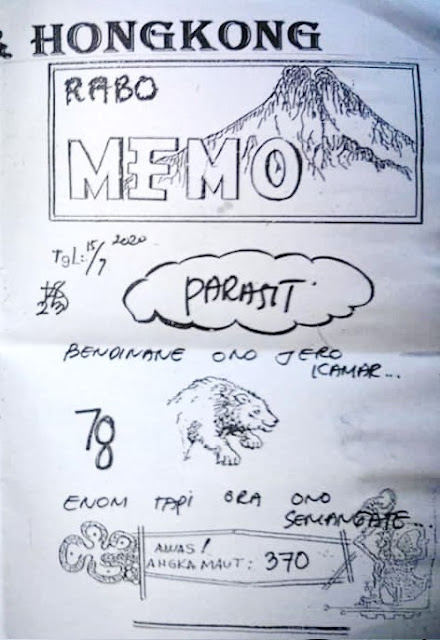 & HONGKONG
RABO
MEMO
TgL: 15/7 2020
PARASIT
BENDINANE ONO JERO
KAMAR...
78
ENOM TAPI ORA ONO
SEMANGATE...
AWAS!
ANGKA MAUT: 370